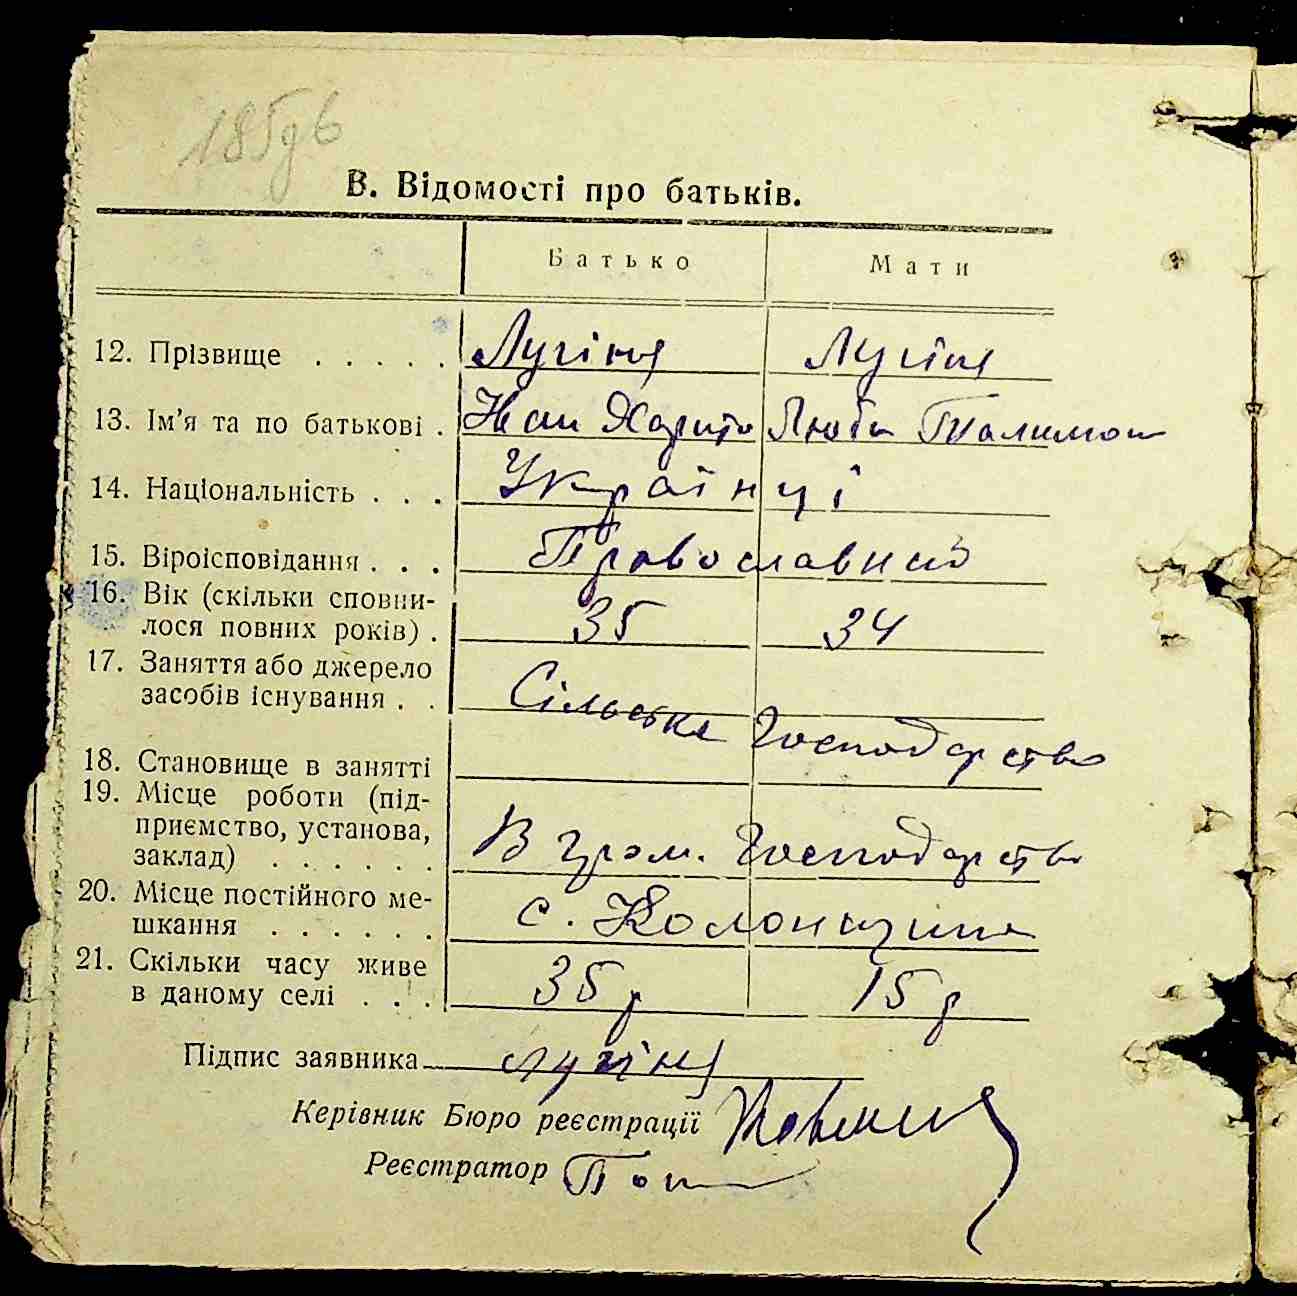 В. Відомості про батьків.
Батько Мати
12. Прізвище . . . . . Лугіня Лугіня
13. Ім'я та по батькові . Іван Харито Люба Палимон
14. Національність . . . Українці
15. Віроісповідання . . . Православний
16. Вік (скільки сповни-
лося повних років) . 35 34
17. Заняття або джерело
засобів існування . . Сільське Господарство
18. Становище в занятті
19. Місце роботи (під-
приємство, установа,
заклад) . . . . . . В гром. Господарстві
20. Місце постійного ме-
шкання . . . . . . с. Колонщина
21. Скільки часу живе
в даному селі . . . 35 р 15 р
Підпис заявника Лугіня
Керівник Бюро реєстрації
Реєстратор